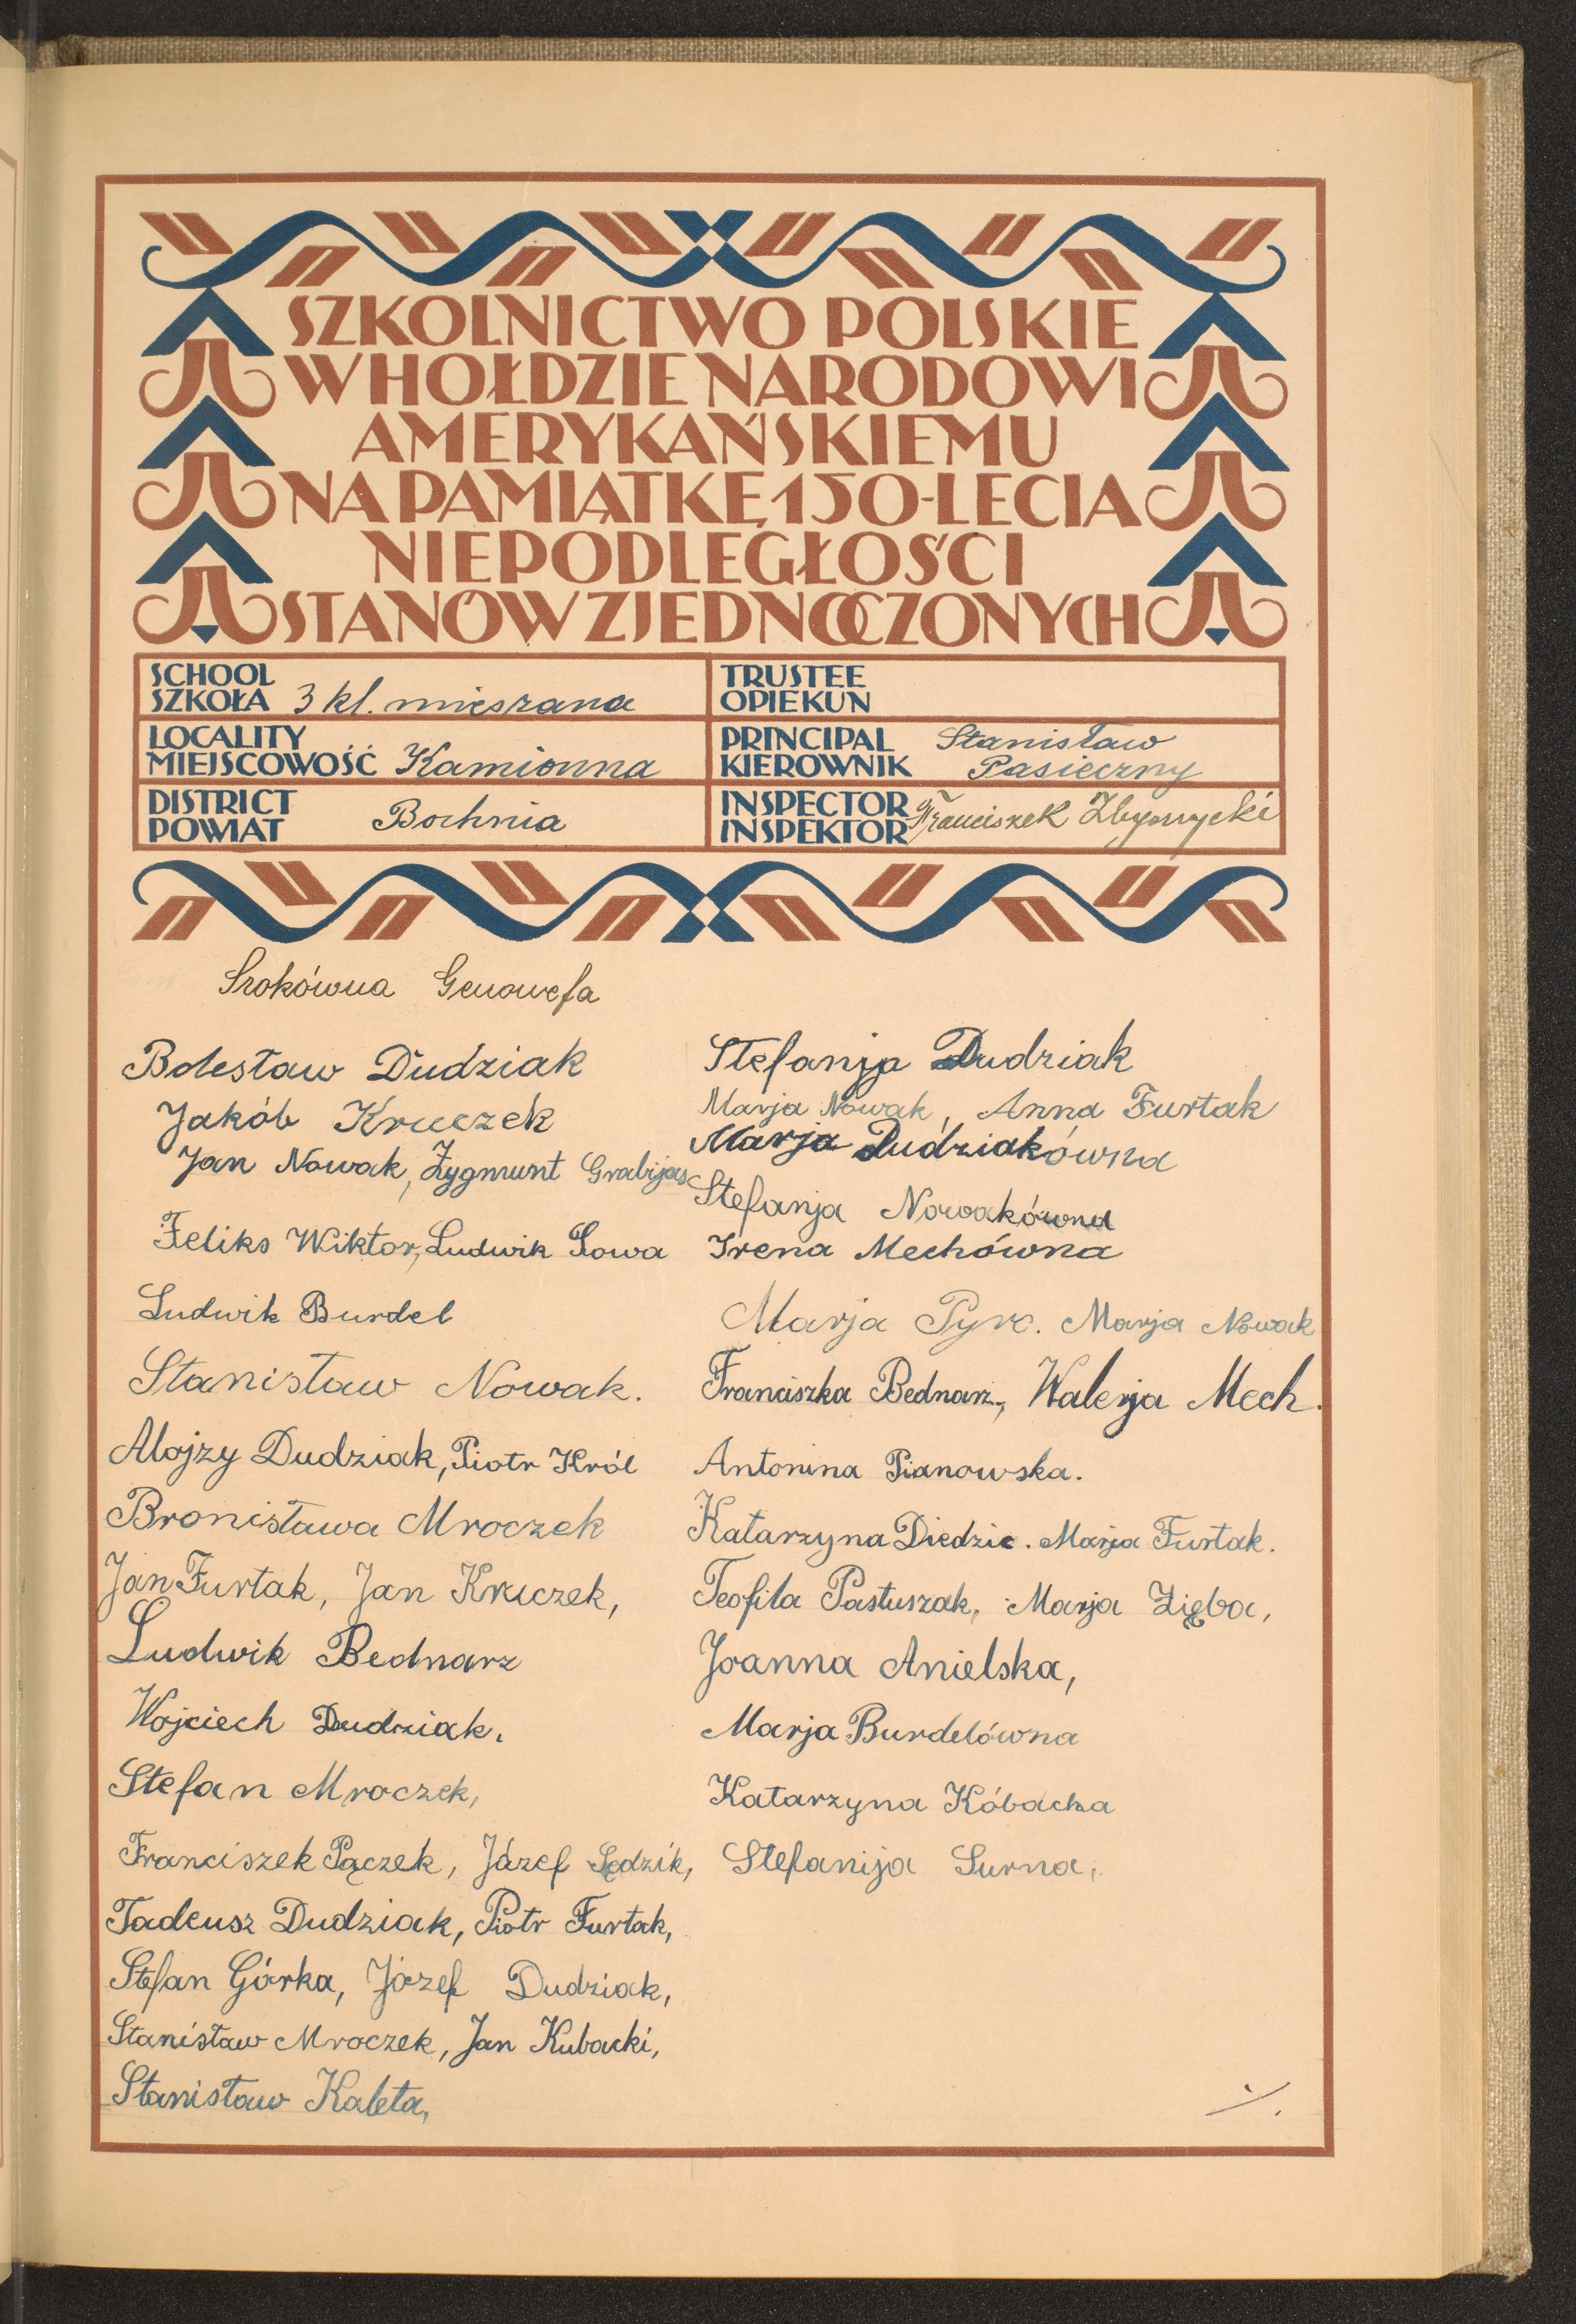 SZKOLNICTWO POLSKIE
W HOŁDZIE NARODOWI
AMERYKAŃSKIEMU
NA PAMIĄTKĘ 150-LECIA
NIEPODLEGŁOŚCI
STANÓW ZJEDNOCZONYCH
SCHOOL
SZKOŁA 3 kl. mieszana
TRUSTEE
OPIEKUN
LOCALITY
MIEJSCOWOŚĆ Kamionna
PRINCIPAL Stanisław
KIEROWNIK Pasieczny
DISTRICT
POWIAT Bochnia
INSPECTOR
INSPEKTOR Franciszek
Srokówna Genowefa
Bolesław Dudziak
Jakób Kruczek
Jan Nowak, Zygmunt Grabijas
Feliks Wiktor, Ludwik Sowa
Ludwik Burdel
Stanisław Nowak.
Alojzy Dudziak, Piotr Król
Bronisława Mroczek
Jan Furtak, Jan Kruczek,
Ludwik Bednarz
Wojciech Dudziak.
Stefan Mroczek,
Franciszek Pączek, Józef Sędzik,
Tadeusz Dudziak, Piotr Furtak,
Stefan Górka, Józef Dudziak,
Stanisław Mroczek, Jan Kubacki,
Stanisław Kaleta,
Stefanja Dudziak
Marja Nowak, Anna Furtak
Marja Dudziakówna
Stefanja Nowakówna
Irena Mechówna
Marja Pyrc. Marja Nowak
Franciszka Bednarz, Walerja Mech.
Antonina Pianowska.
Katarzyna Diedzic. Marja Furtak.
Teofila Pastuszak, Marja Zięba,
Joanna Anielska,
Marja Burdelówna
Katarzyna Kóbacka
Stefanija Surna,